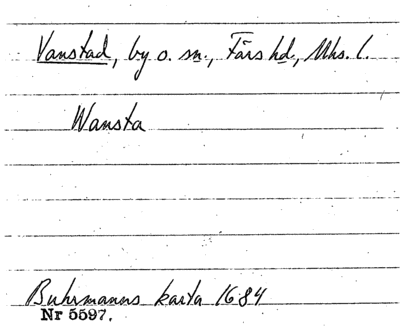 Vanstad, by o. sn., Färs hd, Mhs. l.
Wansta
Buhrmanns karta 1684
Nr 5597.